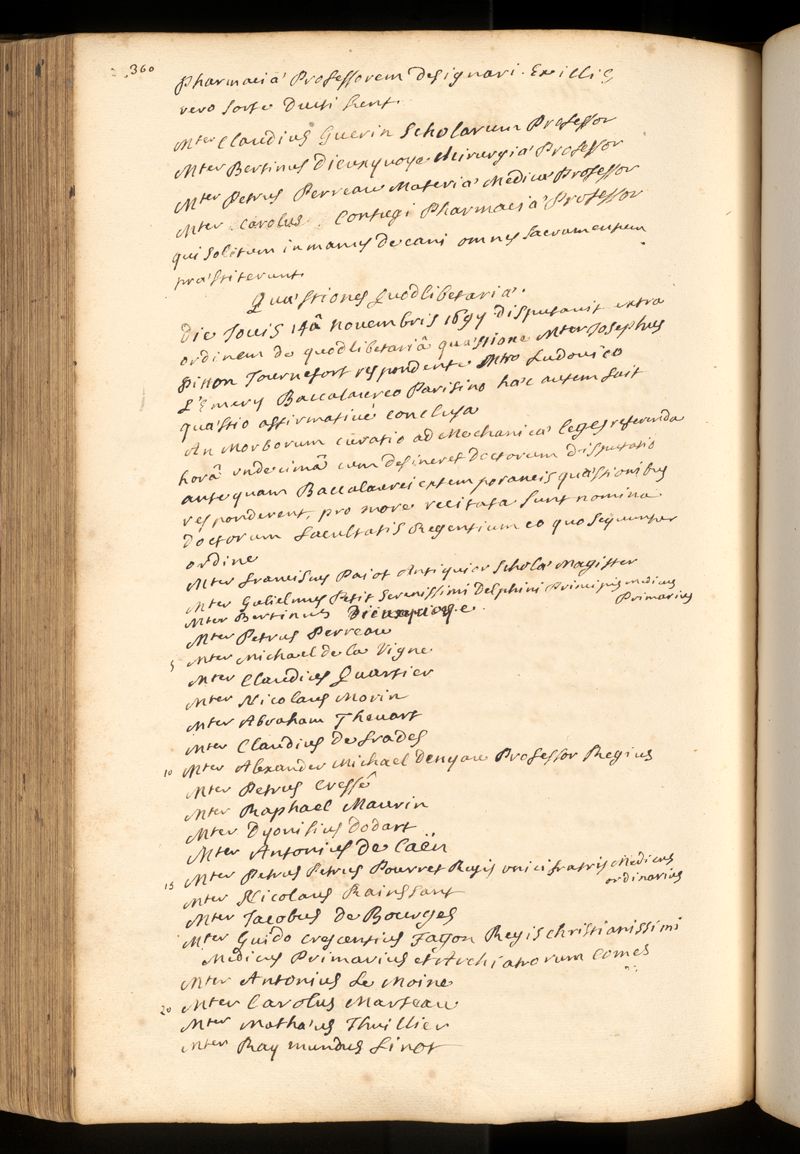 360
Pharmaciæ Professorem designari. Ex illis
vero sorte ducti sunt.
Mter Claudius Guerin Scholarum Professor
Mter Bertinus Dieuxyvoye chirurgiæ Professor
Mter Petrus Perreau Materiæ Medicæ Professor
Mter Carolus Contugi Pharmaciæ Professor
qui solitum in manus decani omnes sacramentum
præstiterunt.
Quæstiones Quodlibetariæ.
Die Jovis 14â novembris 1697 disputavit extra
ordinem de quodlibetariâ quæstione Mter Josephus
Pitton Tournefort respondente Mtro Ludovico
L'Emery Baccalaureo Parisino hæc autem fuit
quæstio affirmativè conclusa
An Morborum curatio ad Mechanicæ leges referenda
horâ undecimâ cum desineret doctorum disputatio
antequam Baccalaurei extemporaneis quæstionibus
responderent, pro more recitata sunt nomina
doctorum facultatis Regentium eo quo sequuntur
ordine
Mter franciscus Paiot Antiquior scholæ Magister
Mter Gulielmus Petit Serenissimi Delphini Principis medicus
Primarius
Mter Bertinus Dieuxyvoye.
Mter Petrus Perreau
5 Mter Michael de la Vigne
Mter Claudius Quartier
Mter Nicolaus Morin
Mter Abraham Thevart
Mter Claudius de frades
10 Mter Alexander Michael Denyau Professor Regius
Mter Petrus Cressé
Mter Raphael Maurin
Mter Dyonisius Dodart
Mter Antonius de Caën
15 Mter Petrus Petrus Pourret Regis unici fratris Medicus
ordinarius
Mter Nicolaus Rainssant
Mter Jacobus de Bourges
Mter Guido crescentius Fagon Regis christianissimi
Medicus Primarius et Archiatrorum Comes
Mter Antonius Le Moine
20 Mter Carolus Marteau
Mter Mathæus Thuillier
Mter Raymundus finot